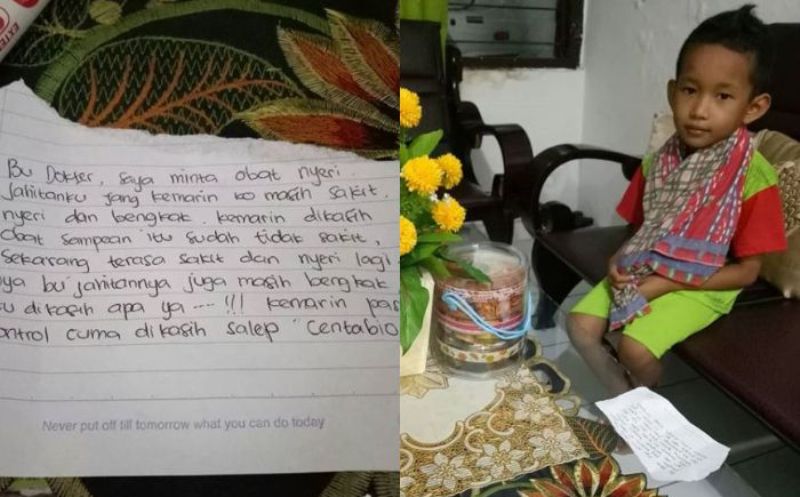 EXTE
Bu Dokter, saya minta obat nyeri.
Jahitanku yang kemarin ko masih sakit.
nyeri dan bengkak. kemarin dikasih
obat sampean itu sudah tidak sakit,
Sekarang terasa sakit dan nyeri lagi
ya bu jahitannya juga masih bengkak
u dikasih apa ya ---!!! kemarin pas
ontrol cuma dikasih salep "Centabio
Never put off till tomorrow what you can do today